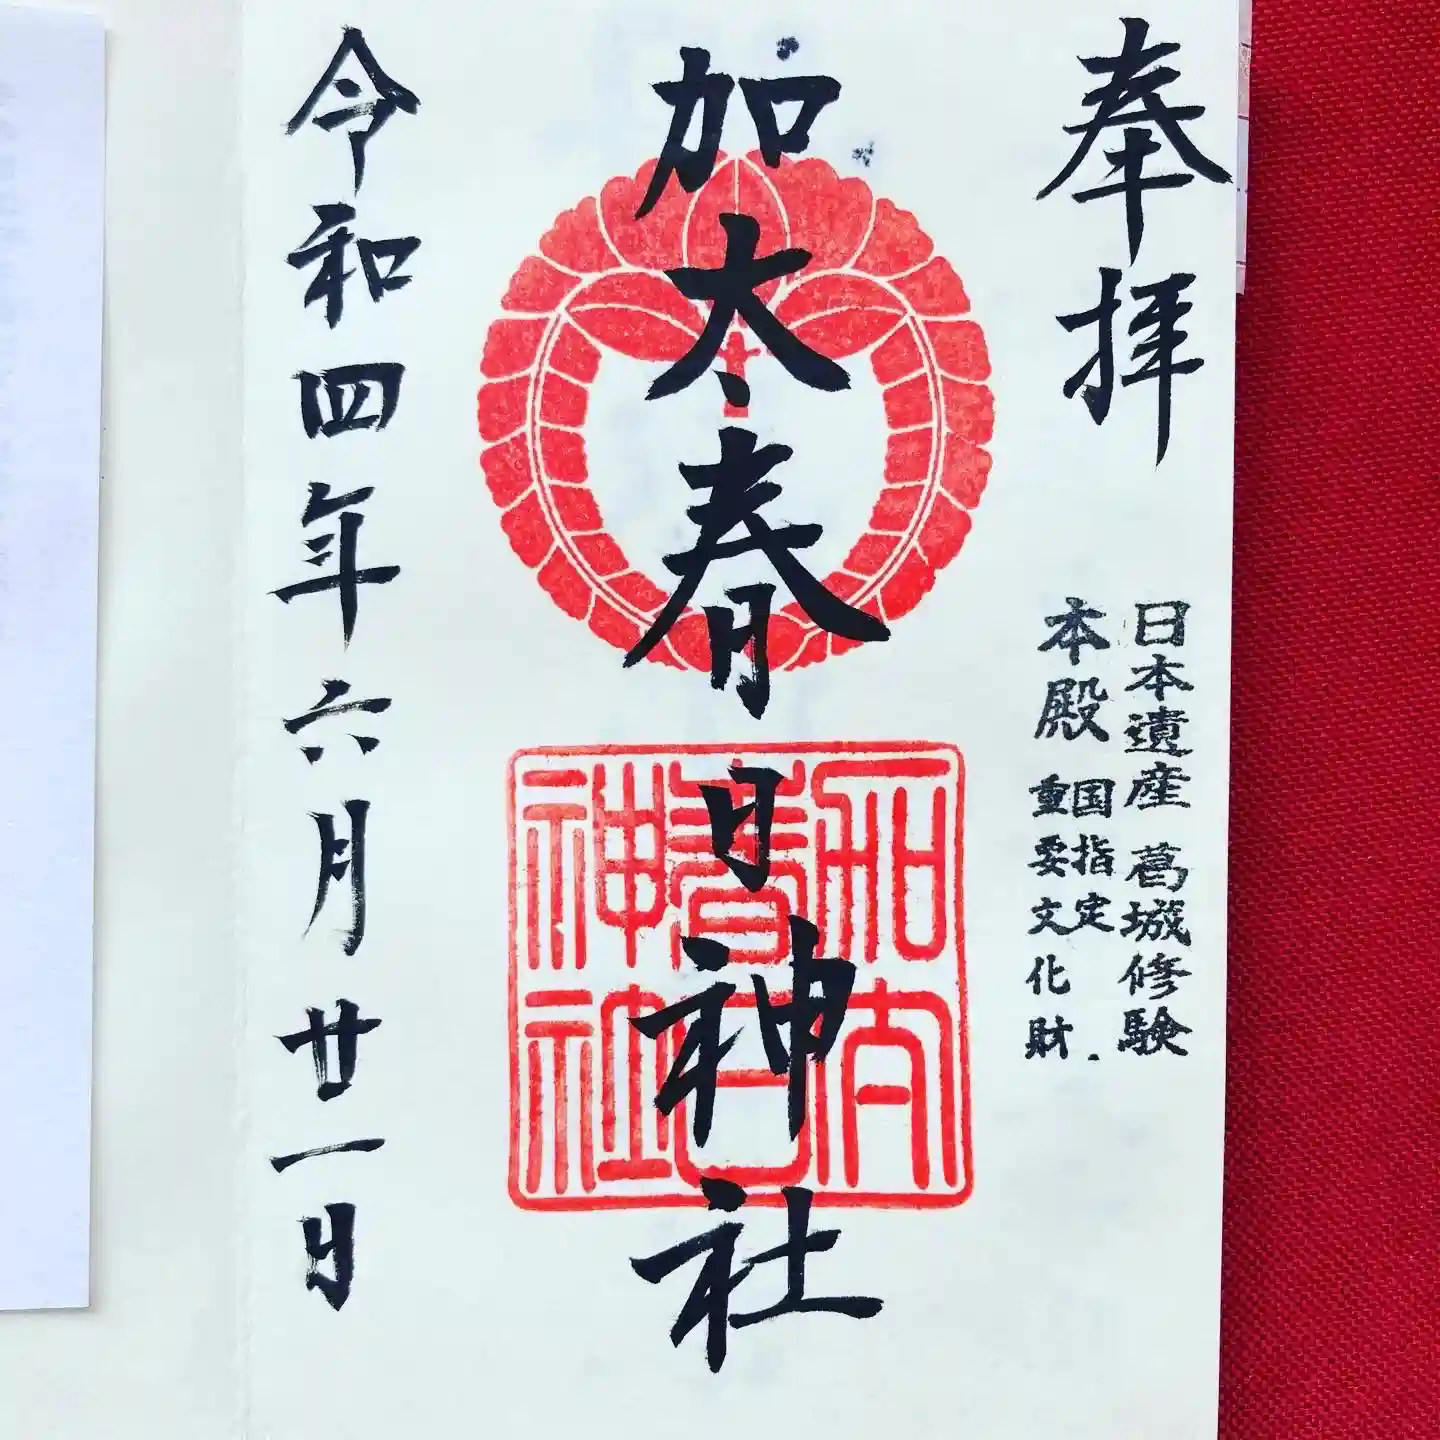 奉拝
日本遺産 葛城修験
本殿 国指定
重要文化財
加太春日神社
加太
春日
神社
令和四年六月廿一日